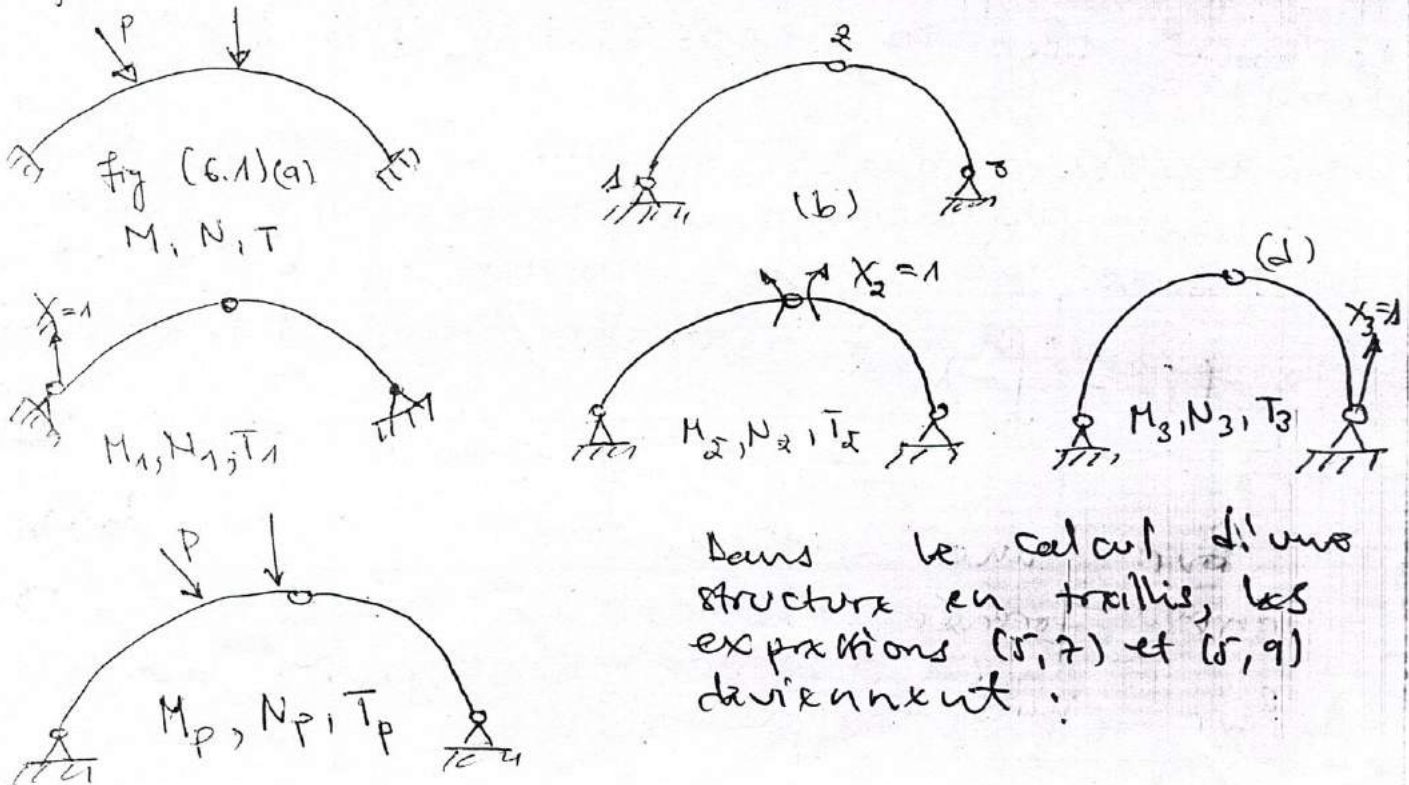 P
fig (6.1)(a)
M, N, T
2
1
3
(b)
X=1
M₁, N₁, T₁
X₂=1
M₂, N₂, T₂
(d)
X₃=1
M₃, N₃, T₃
P
Mp, Np, Tp
Dans le calcul d'une
structure en treillis, les
expressions (5,7) et (5,9)
deviennent :